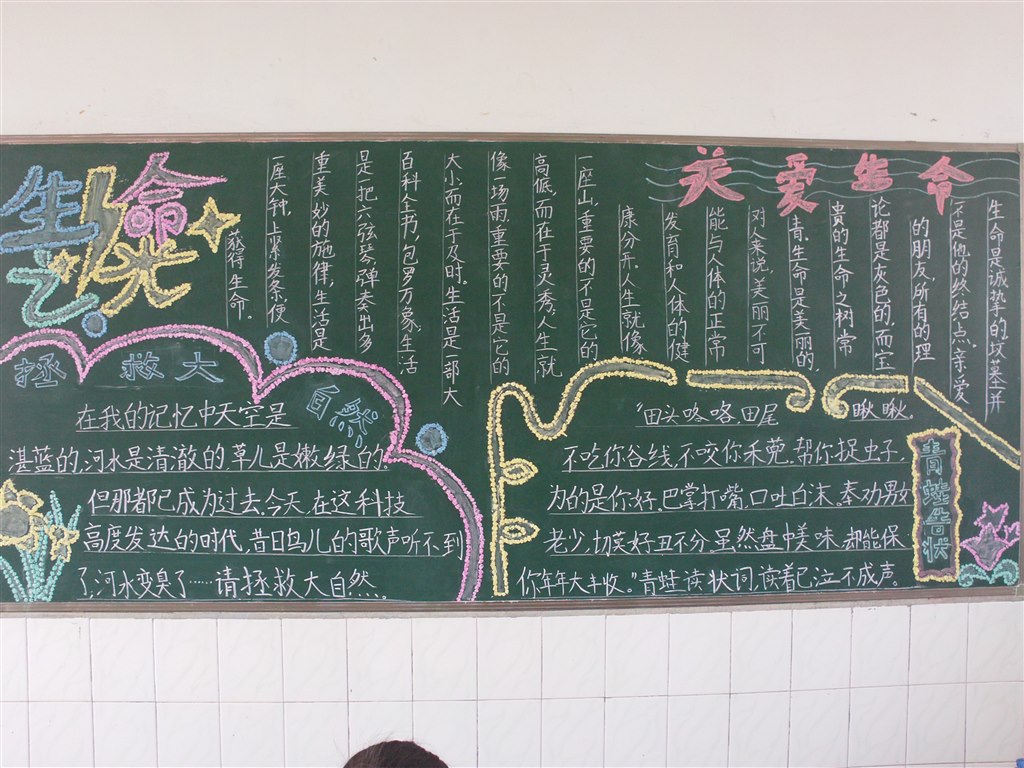 生命之光
关爱生命
生命是诚挚的,坟墓并
不是他的终结点,亲爱
的朋友,所有的理
论都是灰色的,而宝
贵的生命之树常
青,生命是美丽的,
对人来说,美丽不可
能与人体的正常
发育和人体的健
康分开,人生就像
一座山,重要的不是它的
高低,而在于灵秀,人生就
像一场雨,重要的不是它的
大小,而在于及时。生活是一部大
百科全书,包罗万象,生活
是一把六弦琴,弹奏出多
重美妙的旋律,生活是
一座大钟,上紧发条,便
获得生命。
拯救大自然
在我的记忆中天空是
湛蓝的,河水是清澈的草儿是嫩绿的。
但那都已成为过去,今天,在这科技
高度发达的时代,昔日鸟儿的歌声听不到
了,河水变臭了……请拯救大自然。
青蛙告状
“田头咯咯,田尾
瞅瞅。
不吃你谷线,不咬你禾蔸,帮你捉虫子,
为的是你好,巴掌打嘴,口吐白沫。奉劝男女
老少,切莫好丑不分,虽然盘中美味,却能保
你年年大丰收。”青蛙读状词,读着已泣不成声。